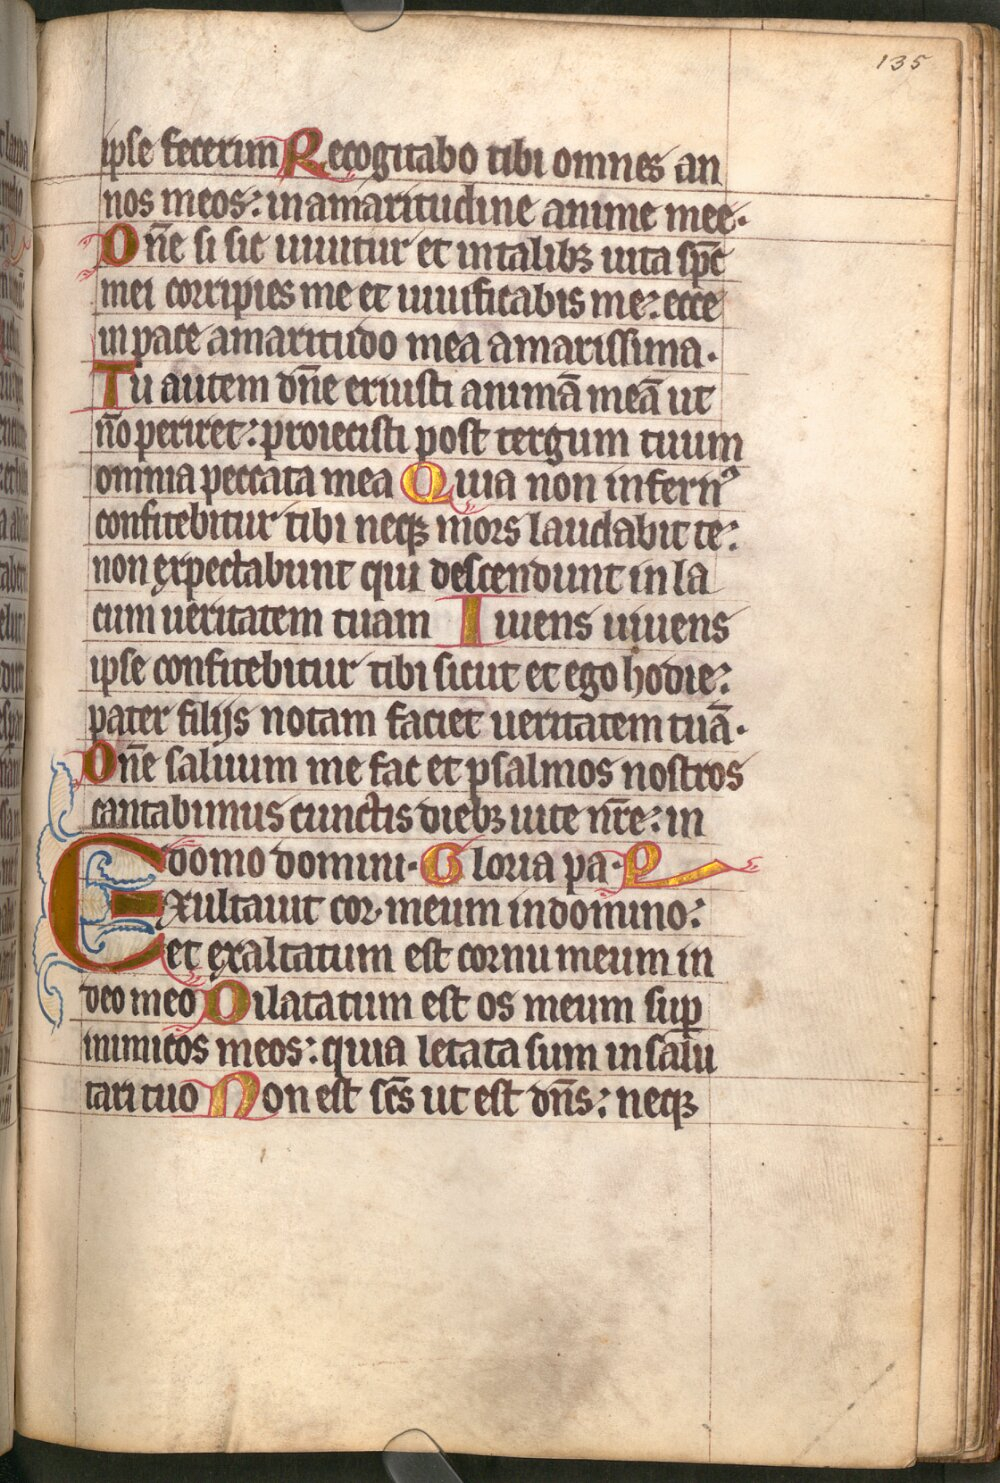 135
ipse fecerim Recogitabo tibi omnes an
nos meos: in amaritudine anime mee.
Dn̄e si sic uiuitur et in talibꝫ uita sp̄c
mei corripies me et uiuificabis me: ecce
in pace amaritudo mea amarissima.
Tu autem dn̄e eruisti animā meā ut
n̄o periret: proiecisti post tergum tuum
omnia peccata mea Quia non infernꝰ
confitebitur tibi neqꝫ mors laudabit te:
non expectabunt qui descendunt in la
cum ueritatem tuam Iuuens uiuens
ipse confitebitur tibi sicut et ego hodie:
pater filijs notam faciet ueritatem tuā.
Dn̄e saluum me fac et psalmos nostros
cantabimus cunctis diebꝫ uite nr̄e: in
domo domini. Gloria pa. P
Exultauit cor meum in domino:
et exaltatum est cornu meum in
deo meo Dilatatum est os meum suꝑ
inimicos meos: quia letata sum in salu
tari tuo Non est sc̄s ut est dn̄s: neqꝫ